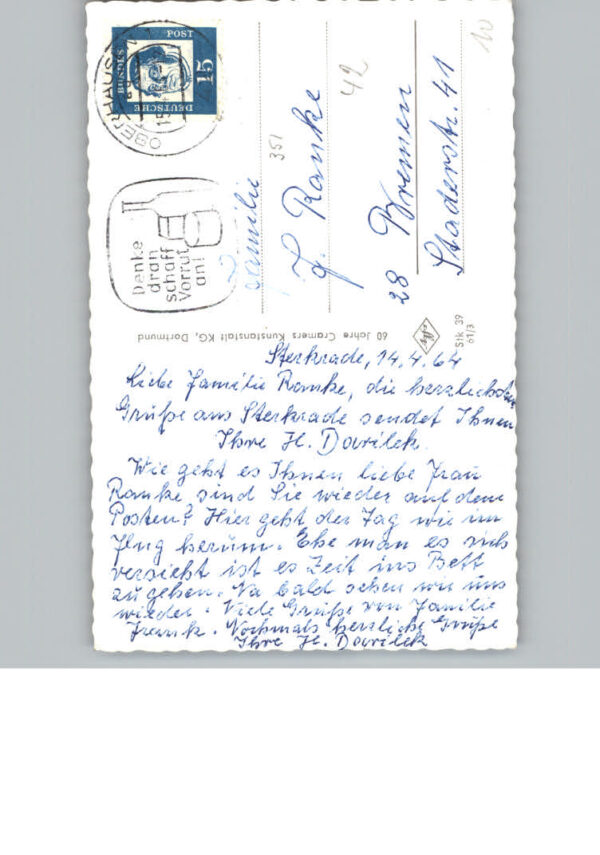 Sterkrade, 14.4.64
Liebe Familie Ranke, die herzlichsten
Grüße aus Sterkrade sendet Ihnen
Ihre H. Davilek.
Wie geht es Ihnen liebe Frau
Ranke sind Sie wieder auf dem
Posten? Hier geht der Tag wie im
Flug herum. Ehe man es sich
versieht ist es Zeit ins Bett
zu gehen. Na bald sehen wir uns
wieder. Viele Grüße von Familie
Nochmals herzliche Grüße
Ihre H. Davilek
Familie
J. Ranke
28 Bremen
Staderstr. 41
351
42
10
DEUTSCHE
BUNDES
POST
15
OBERHAUS
Denke
dran
schaff
Vorrat
an!
60 Jahre Cramers Kunstanstalt KG, Dortmund
Stk 39
61/3